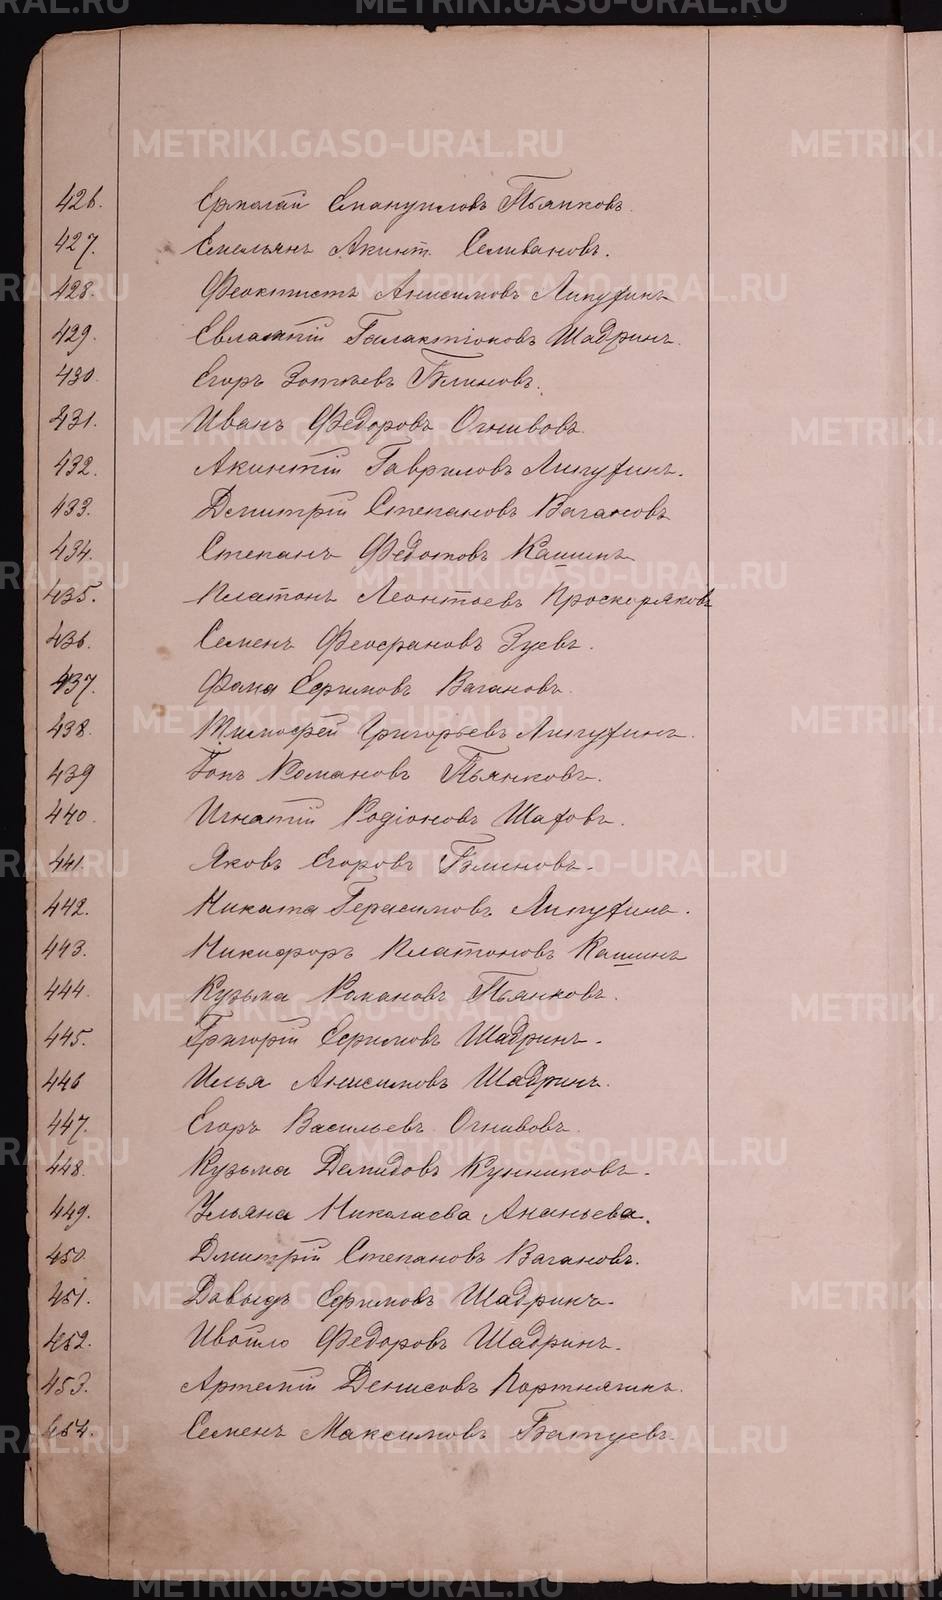 426. Ермолай Емануилов Пьянковъ.
427. Емельянъ Акинт. Селивановъ.
428. Феоктистъ Анисимовъ Липухинъ
429. Евлампій Галактіоновъ Шадринъ.
430. Егоръ Зотѣевъ Блиновъ.
431. Иванъ Федоровъ Огнивовъ
432. Акинтій Гавриловъ Липухинъ.
433. Дмитрій Степановъ Вагановъ
434. Степанъ Федотовъ Кашинъ
435. Платонъ Леонтьевъ Проскоряковъ
436. Семенъ Феофановъ Зуевъ.
437. Фома Ефимовъ Вагановъ.
438. Тимофей Григорьевъ Липухинъ.
439 Романовъ Пьянковъ.
440. Игнатій Родіоновъ Шаховъ.
441. Яковъ Егоровъ Блиновъ.
442. Никита Герасимовъ Липухинъ.
443. Никифоръ Платоновъ Кашинъ
444. Кузьма Романовъ Пьянковъ.
445. Григорій Ефимовъ Шадринъ.
446 Илья Анисимовъ Шадринъ.
447. Егоръ Васильевъ Огнивовъ.
448. Кузьма Демидовъ Кунниковъ.
449. Ульяна Николаева Ананьева.
450. Дмитрій Степановъ Вагановъ.
451. Давыдъ Ефимовъ Шадринъ.
452. Федоровъ Шадринъ.
453. Артемій Денисовъ Портнягинъ.
454. Семенъ Максимовъ Батуевъ.
METRIKI.GASO-URAL.RU